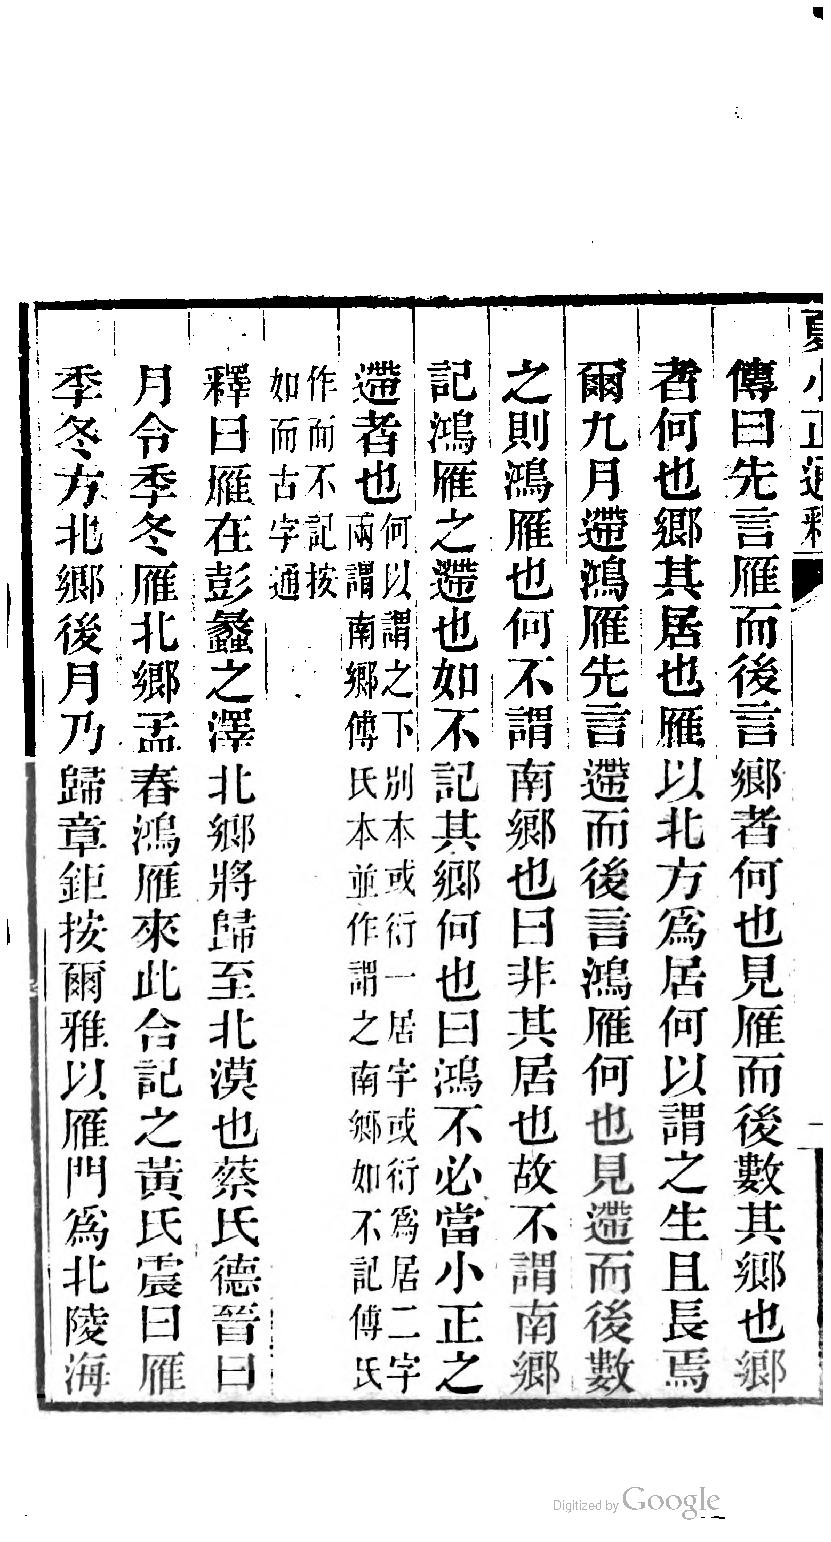 夏小正通釋
傳曰先言雁而後言鄉者何也見雁而後數其鄉也鄉
者何也鄉其居也雁以北方爲居何以謂之生且長焉
爾九月遰鴻雁先言遰而後言鴻雁何也見遰而後數
之則鴻雁也何不謂南鄉也曰非其居也故不謂南鄉
記鴻雁之遰也如不記其鄉何也曰鴻不必當小正之
遰者也
何以謂之下別本或衍一居字或衍爲居二字
兩謂南鄉傅氏本並作謂之南鄉如不記傅氏
作而不記按
如而古字通
釋曰雁在彭蠡之澤北鄉將歸至北漠也蔡氏德晉曰
月令季冬雁北鄉孟春鴻雁來此合記之黃氏震曰雁
季冬方北鄉後月乃歸章鉅按爾雅以雁門爲北陵海
Digitized by Google